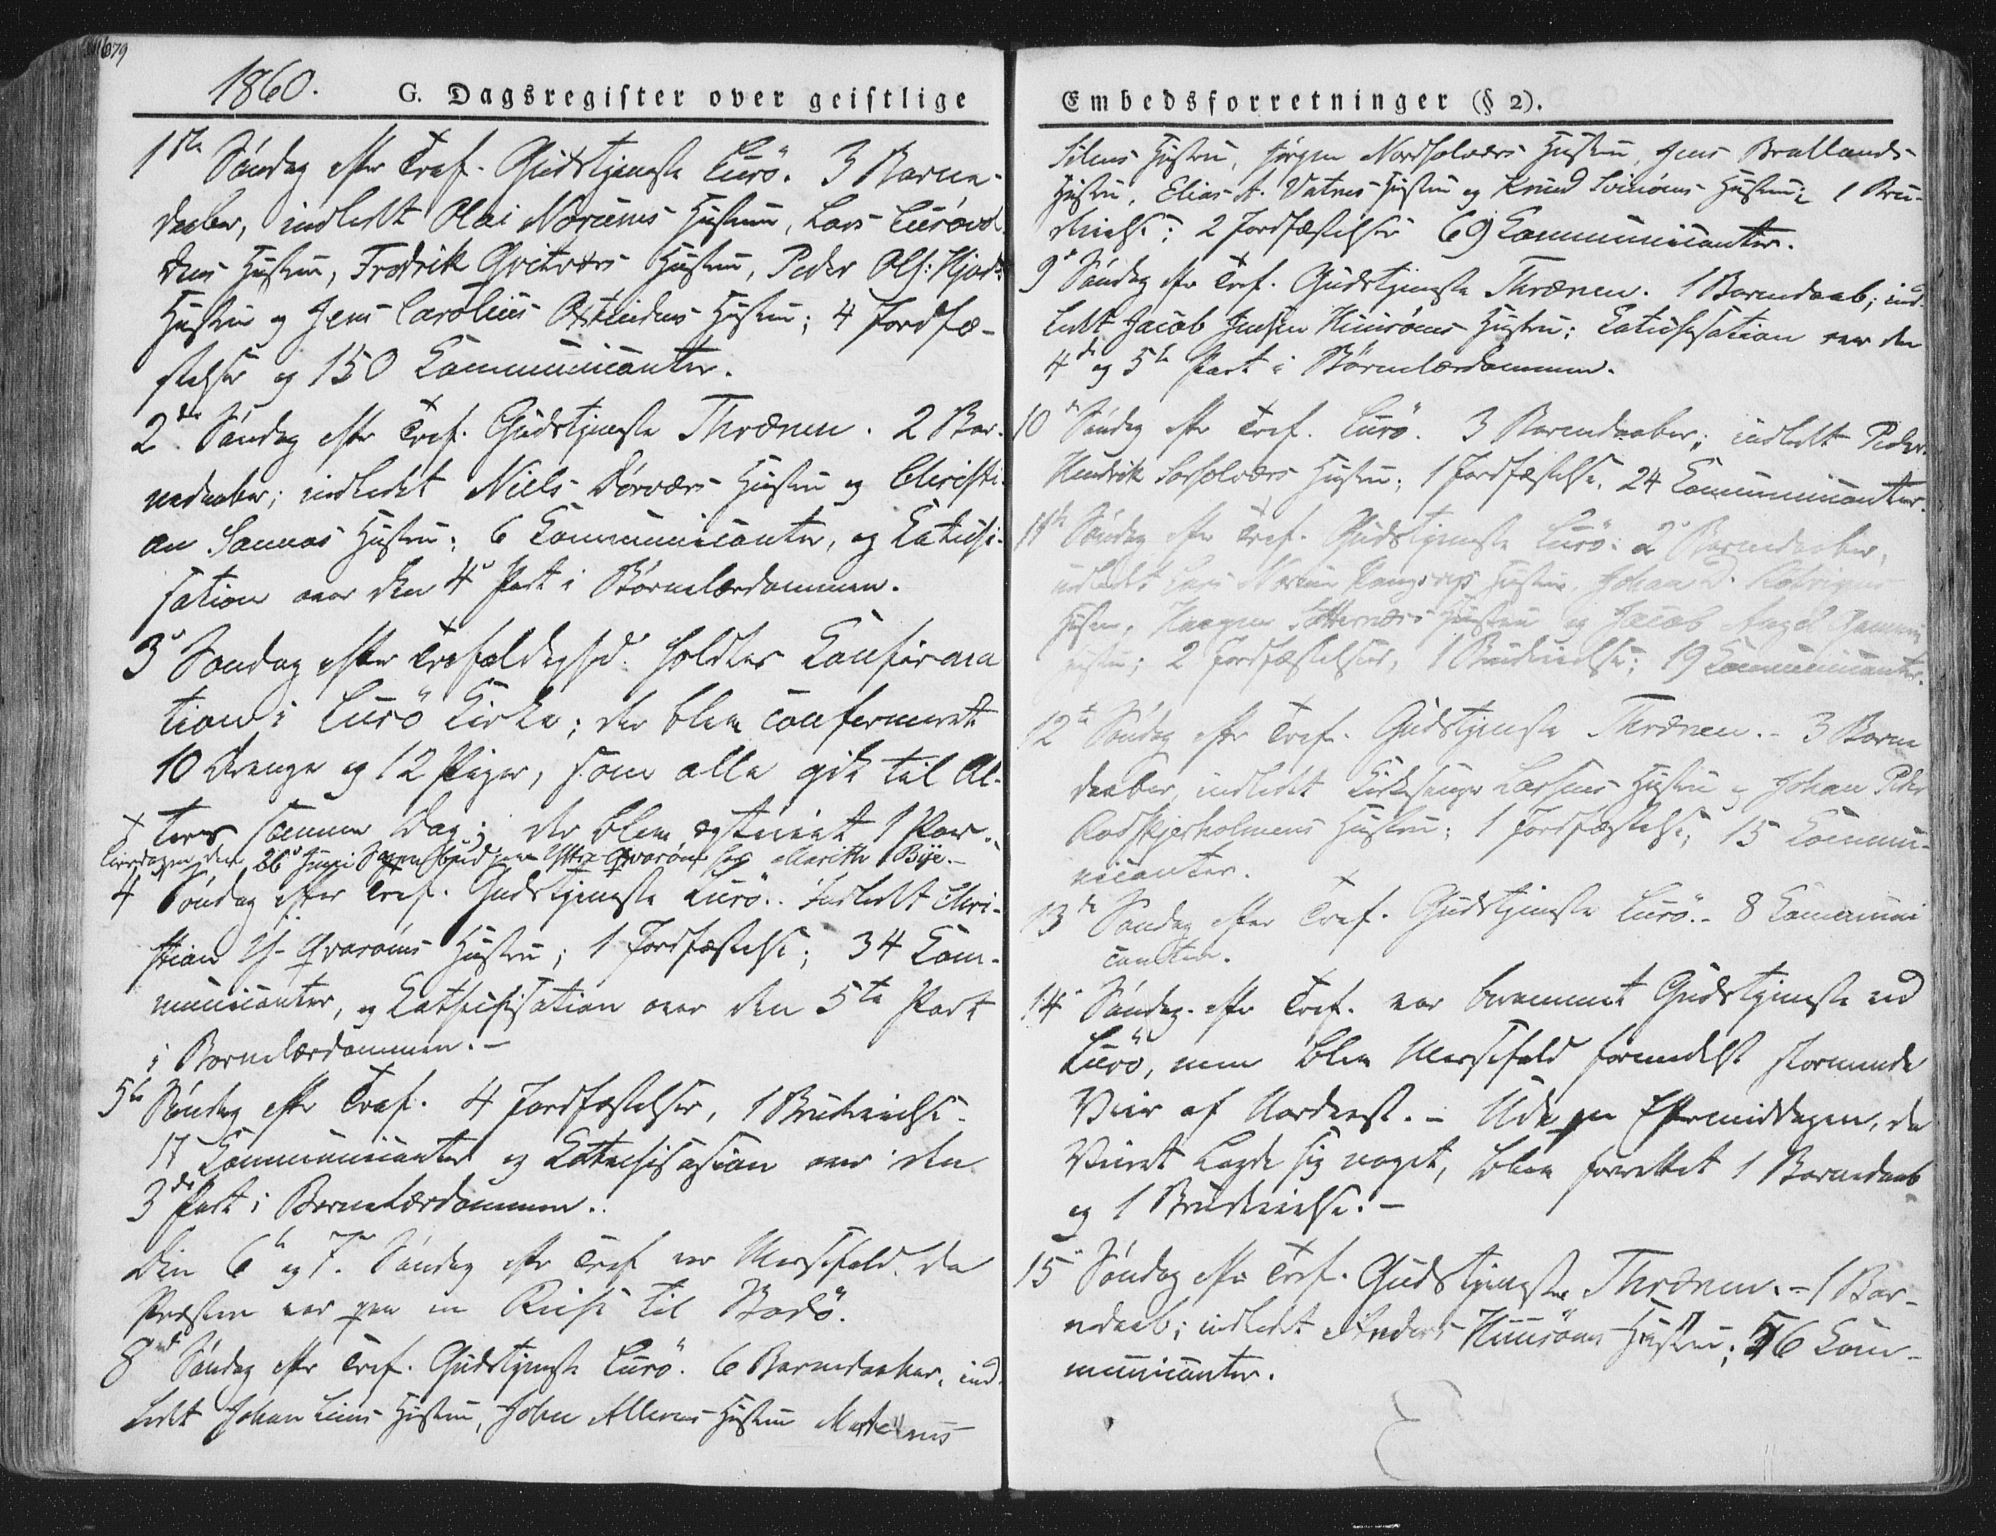 679
1860. G. Dagsregister over geistlige
1ste Søndag efter Tref. Gudstjeneste Lurø. 3 Barne-
daaber, indledt Olai Norums Hustru, Lars Lurøvol
dens Hustru, Fredrik Qvitværs Hustru, Peder Ols: Hjarts
Hustru og Jens Carolius Hustru; 4 Jordfæ-
stelser og 150 Communicanter.
2den Søndag efter Tref. Gudstjeneste Thrænen. 2 Bar-
nedaaber; indledet Niels Dørværs Hustru og Christi-
an Sannas Hustru; 6 Communicanter, og Catechi-
sation over den 4de Part i Børnelærdommen.
3die Søndag efter Trefoldighed. holdtes Confirma
tion i Lurø Kirke; der blev confirmeret
10 Drenge og 12 Piger, som alle gik til Al-
ters samme Dag; der blev egteviet 1 Par.
Løverdagen den 26de Juni Sognebud paa Yttre Qvarøen hos Marith Bye.-
4 Søndag efter Tref. Gudstjeneste Lurø. Indledt Chri-
stian Y. Qvarøens Hustru; 1 Jordfæstelse; 34 Com-
municanter, og Catechisation over den 5te Part
i Børnelærdommen. -
5te Søndag efter Tref. 4 Jordfæstelser, 1 Brudevielse.
17 Communicanter og Catechisasion over den
3die Part i Børnelærdommen.
Den 6te og 7de Søndag efter Tref var Messefald, da
Præsten var paa en Reise til Bodø.
8de Søndag efter Tref. Gudstjeneste Lurø. 6 Barnedaaber, ind-
ledt Johan Hustru, John Hustru Martenus
Embedsforretninger (§ 2).
Hustru, Jørgen Nordsolværs Hustru, Jens Bratlands
Hustru, Elias A. Vatnes Hustru og Knud Hustru; 1 Bru-
devielse; 2 Jordfæstelser 69 Communicanter.
9de Søndag efter Tref. Gudstjeneste Thrænen. 1 Barnedaab; ind-
ledt Jacob Jensen Husøens Hustru; Catechisation over den
4de og 5te Part i Børnelærdommen.
10de Søndag efter Tref. Lurø. 3 Barnedaaber; indledt Peder
Hendrik Sørsolværs Hustru; 1 Jordfæstelse. 24 Communicanter.
11te Søndag efter Tref. Gudstjeneste Lurø. 2 Barnedaaber,
indledt Lars Hustru, Johan D.
Hustru, Haagen Hustru og Jacob
Hustru; 2 Jordfæstelser, 1 Brudevielse; 19 Communicanter.
12te Søndag efter Tref. Gudstjeneste Thrænen. - 3 Barne
daaber, indledt Kirkesanger Larsens Hustru og Johan Peder
Rødskjærholmens Hustru; 1 Jordfæstelse; 15 Commu-
nicanter.
13de Søndag efter Tref. Gudstjeneste Lurø. - 8 Communi
canter.
14de Søndag efter Tref. var berammet Gudstjeneste ved
Lurø, men blev Messefald formedelst stormende
Veir af Nordvest. - Ude paa Eftermiddagen, da
Veiret lagde sig noget, blev forrettet 1 Barnedaab
og 1 Brudevielse. -
15de Søndag efter Tref. Gudstjeneste Thrænen. - 1 Bar-
nedaab; indledet Anders Husøens Hustru; 56 Com-
municanter.